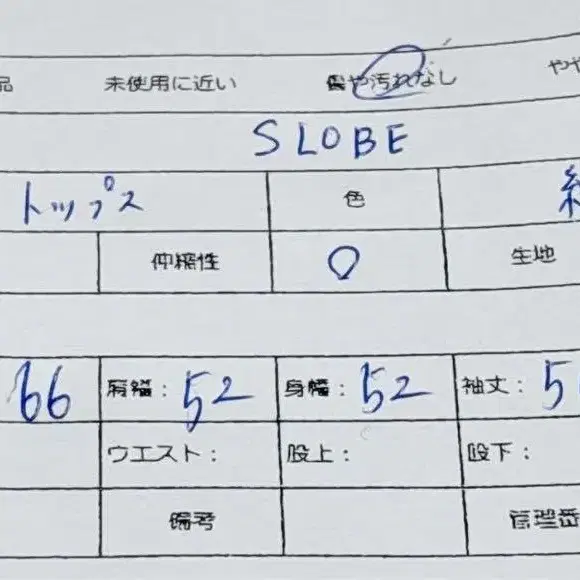 品 未使用に近い 傷や汚れなし やや
SLOBE
トップス 色
伸縮性 〇 生地
66 肩幅： 52 身幅： 52 袖丈： 5
ウエスト： 股上： 股下：
備考 管理番